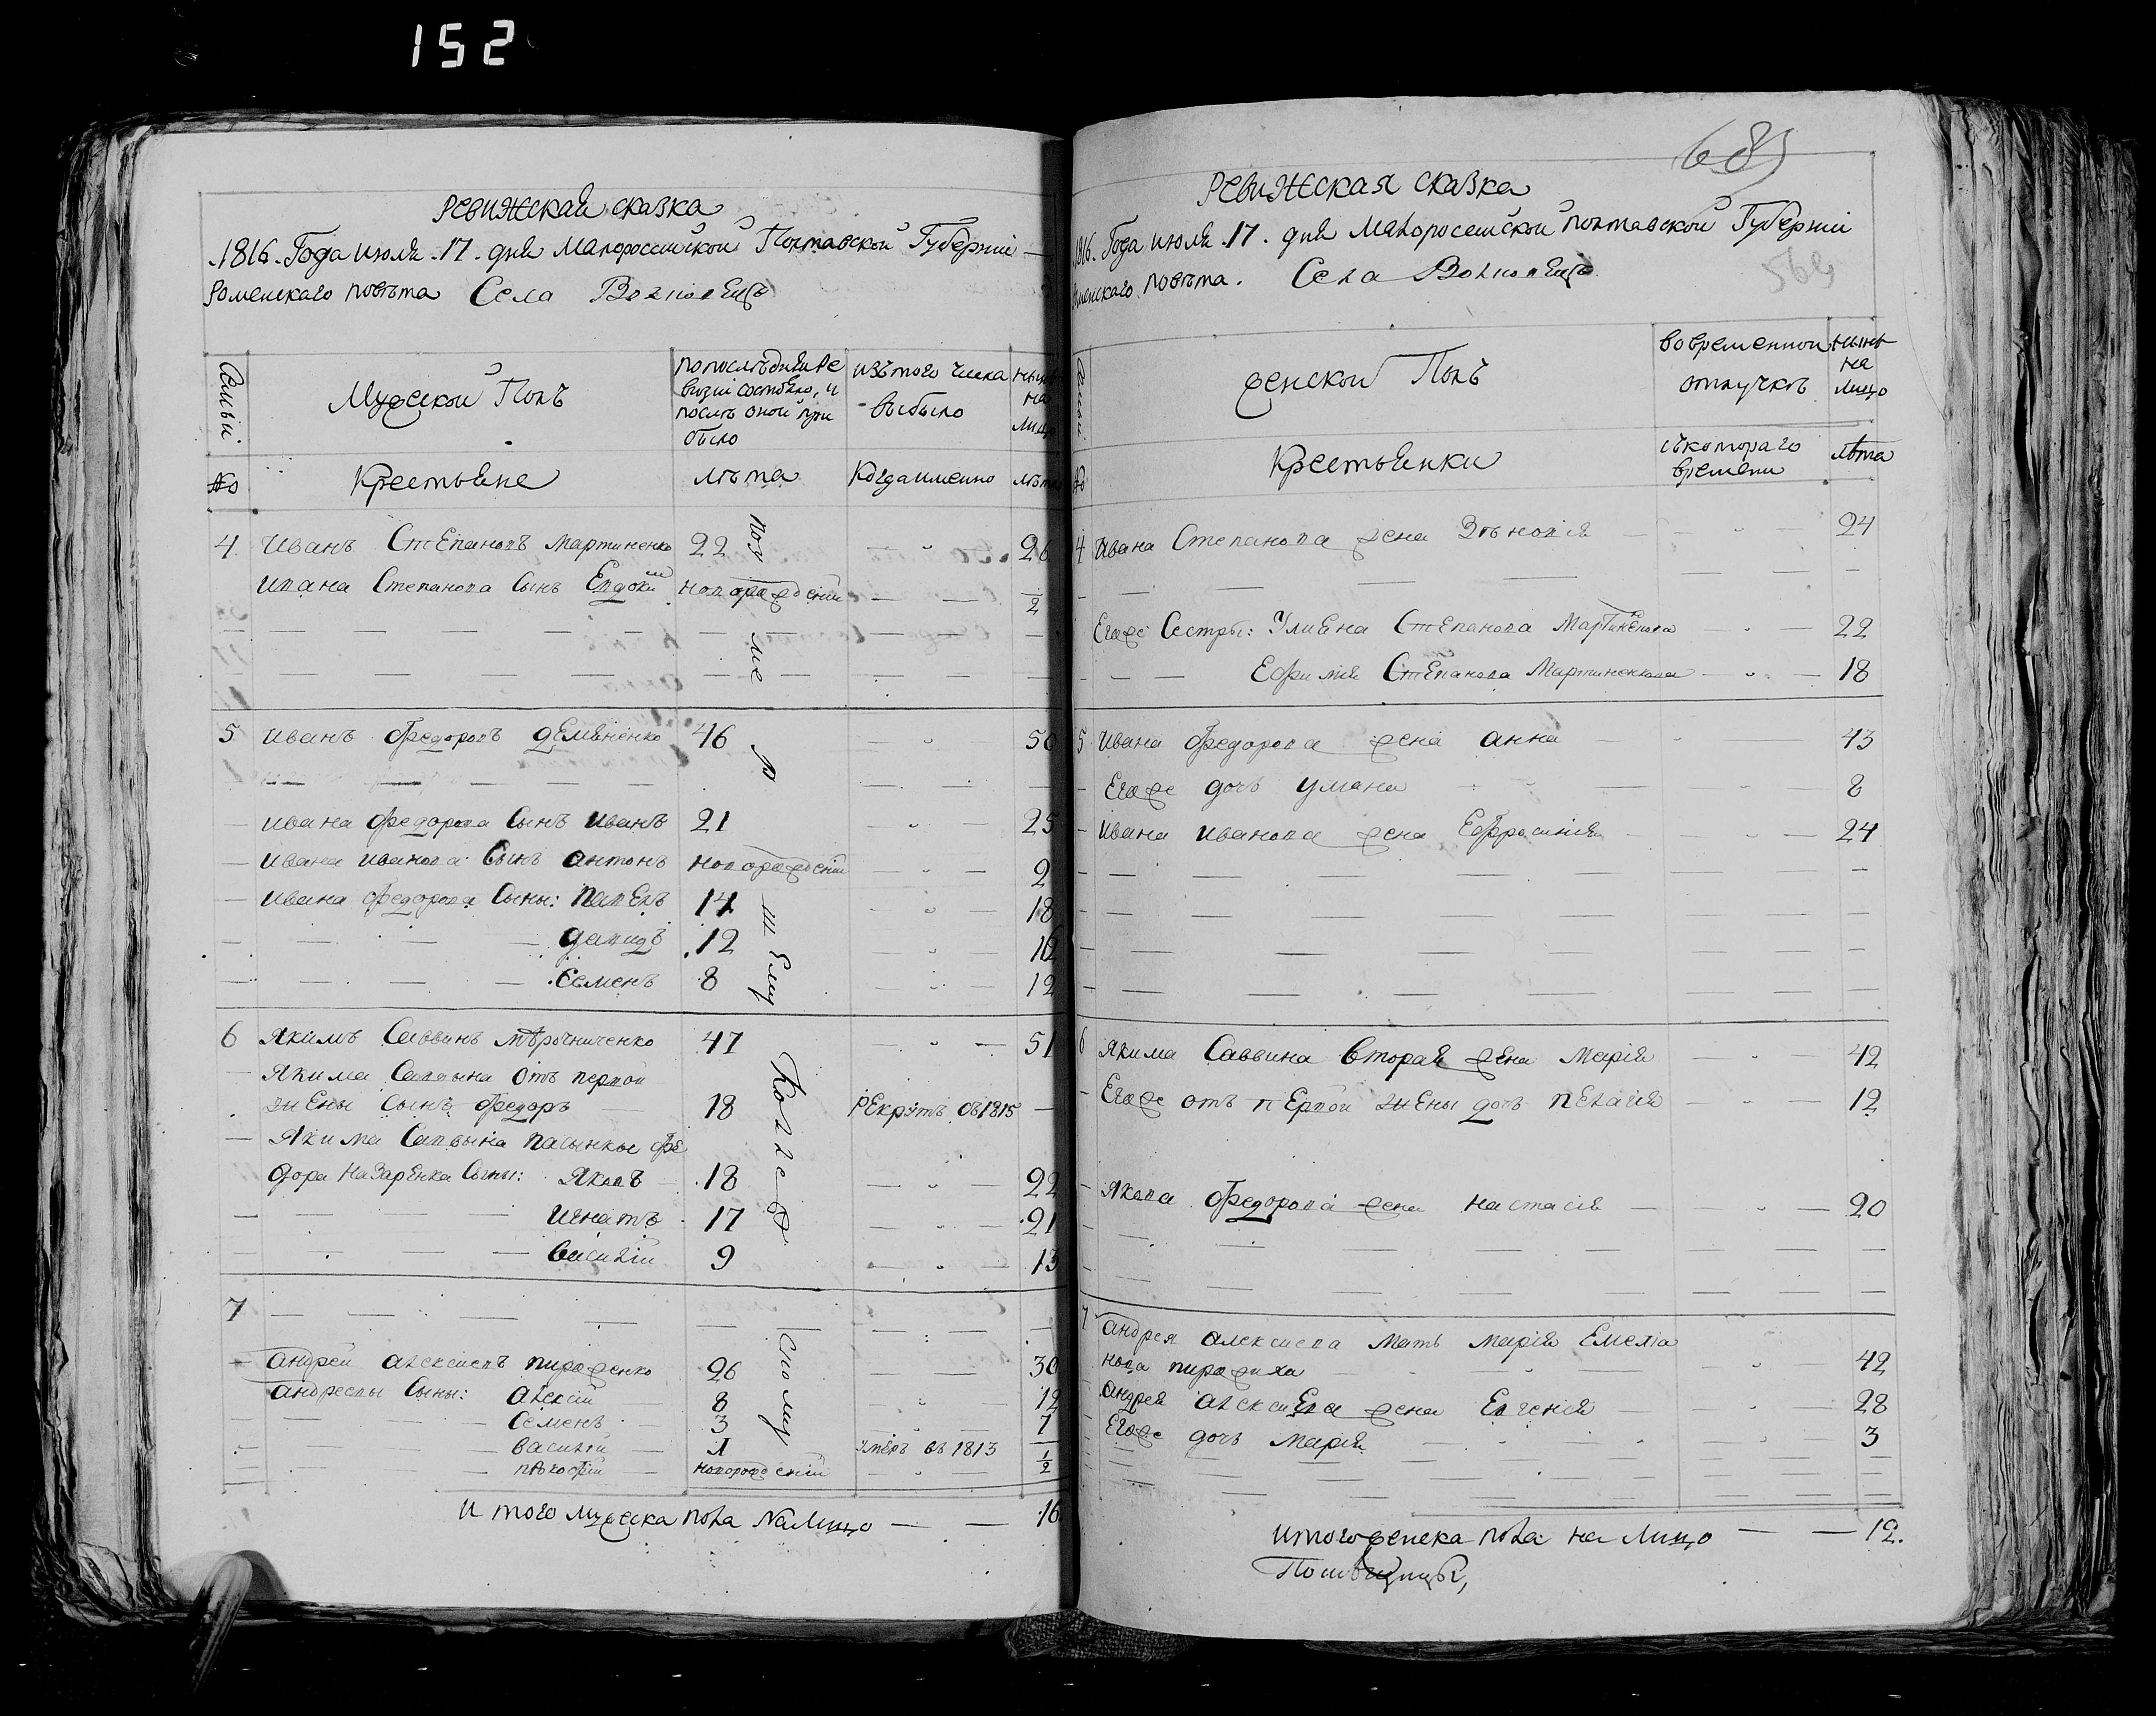 152
РЕвиЖская сказка
1816. Года июля .17. дня Малороссийской Полтавской Губернии
Роменского повѣта Села Волковець
Семьи
Мужеской Полъ
по послѣдней ре
визіи состояло, и
послѣ оной при
было
изъ того числа
выбыло
нынѣ
на
лицо
№
Крестьяне
лѣта
Когда именно
лѣта
4 Иванъ Степановъ Мартиненко 22 — 26
Ивана Степанова Сынъ Евдоким новорожденій — 1/2
5 Иванъ Федоровъ демяненко 46 — 50
Ивана Федорова Сынъ Иванъ 21 — 25
Ивана Иванова Сынъ Антонъ новорожденій — 2
Ивана Федорова Сыны: Павелъ 14 — 18
давидъ 12 — 16
Семенъ 8 — 12
6 Якимъ Саввинъ 47 — 51
Якима Саввына отъ первой
жены Сынъ Федоръ 18 рекрутъ въ 1815 —
Якима Саввына пасынкы Фе
дора Назаренка Сыны: Яковъ 18 — 22
Игнатъ 17 — 21
Василій 9 — 13
7
Андрей Алексиевъ пироженко 26 — 30
Андреевы Сыны: Алексій 8 — 12
Семенъ 3 — 7
Василій 1 умеръ въ 1813
новорожденій — 1/2
Итого мужеска пола налицо — — 16
689
569
РЕвиЖская сказка
1816. Года июля .17. дня Малоросейской полтавской Губернии
Роменского повѣта. Села Волковець
женской Полъ
во временной
отлучкѣ
нынѣ
на
лицо
№
Крестьянки
съ котораго
времени
лѣта
4 Ивана Степанова жена Зѣновія — 24
Егоже Сестры: Улияна Степанова Мартиненкова — 22
Ефимія Степанова Мартиненкова — 18
5 Ивана Федорова жена анна — 43
Егоже дочь уляна — 8
Ивана Иванова жена Ефросинія — 24
6 Якима Саввина вторая жена Марія — 42
Егоже отъ первой жены дочь пелагія — 12
Якова Федорова жена настасія — 20
7 Андрея алексиева мать Марія Емелія
нова пирожиха — 42
Андрея алексиева жена Евгенія — 28
Егоже дочь Марія — 3
Итого женска пола на Лицо — — 12.